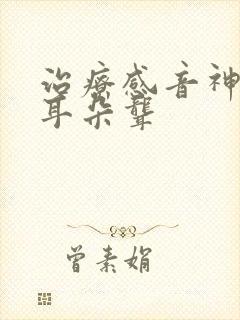 治疗感音神
耳朵聋
曾素娟